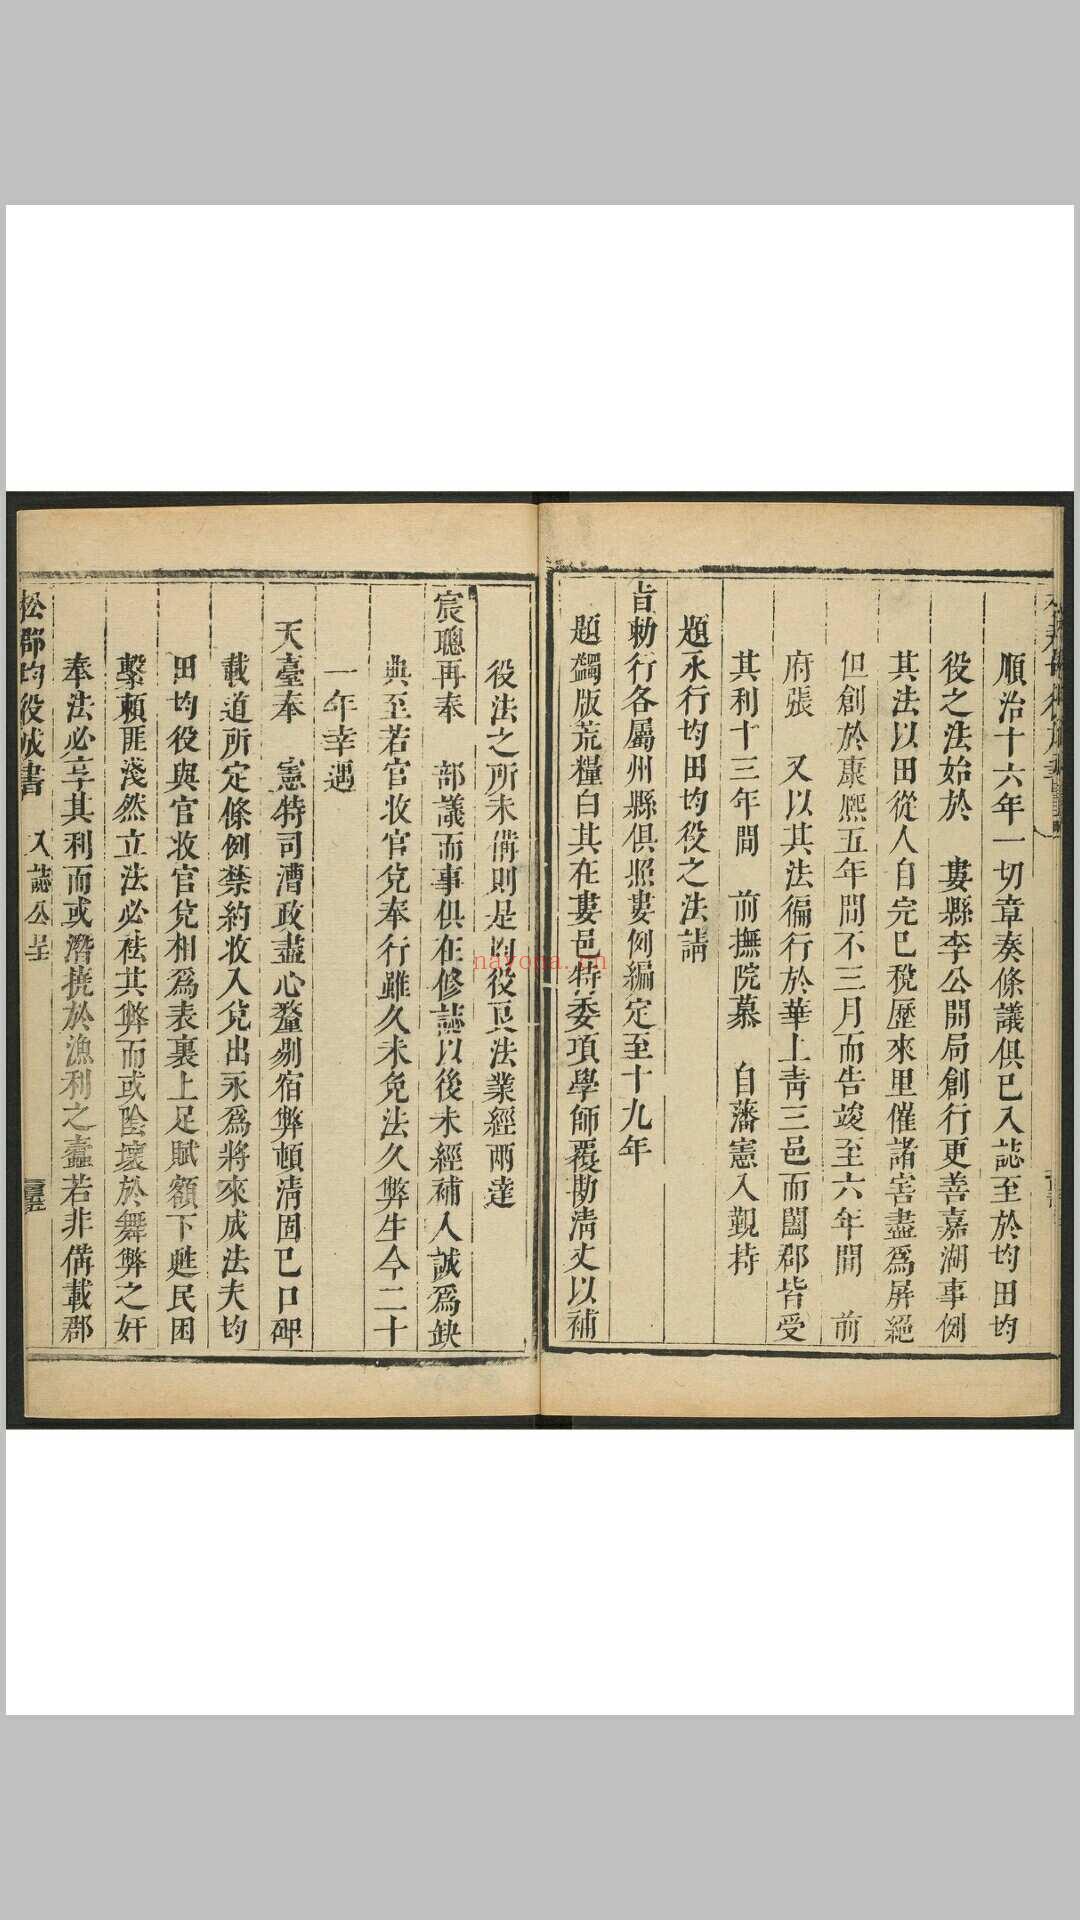 順治十六年一切章奏條議俱已入誌至於均田均
役之法始於　婁縣李公開局創行更善嘉湖事例
其法以田從人自完已稅歷來里催諸害盡爲屏絕
但創於康熈五年間不三月而告竣至六年間　前
府張　又以其法徧行於華上靑三邑而闔郡皆受
其利十三年間　前撫院慕　自藩憲入覲持
題永行均田均役之法請
旨勅行各屬州縣俱照婁例編定至十九年
題蠲版荒糧白其在婁邑特委項學師覆勘淸丈以補
役法之所未備則是均役良法業經兩達
宸聰再奉　部議而事俱在修誌以後未經補入誠爲缺
典至若官收官兌奉行雖久未免法久弊生今二十
一年幸遇
天臺奉　憲特司漕政盡心釐剔宿弊頓淸固已口碑
載道所定條例禁約收入兌出永爲將來成法夫均
田均役與官收官兌相爲表裏上足賦額下甦民困
繫賴匪淺然立法必祛其弊而或陰壞於舞弊之奸
奉法必享其利而或潛撓於漁利之蠹若非備載郡
松郡均役成書　入誌公呈
nayona.cn